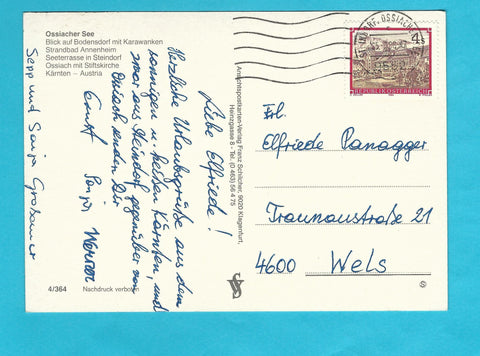 Ossiacher See
Blick auf Bodensdorf mit Karawanken
Strandbad Annenheim
Seeterrasse in Steindorf
Ossiach mit Stiftskirche
Kärnten – Austria
Liebe Elfriede!
Herzliche Urlaubsgrüße aus dem
sonnigen u. heißen Kärnten, und
zwar aus Steindorf gegenüber von
Ossiach senden Dir
Ernst Sonja
Sepp und Sonja
4/364 Nachdruck verboten
Ansichtspostkarten-Verlag Franz Schilcher, 9020 Klagenfurt,
Heinzgasse 8 - Tel. (0 463) 56 4 75
OSSIACH
4 S
REPUBLIK ÖSTERREICH
Frl.
Elfriede Panagger
Traunaustraße 21
4600 Wels